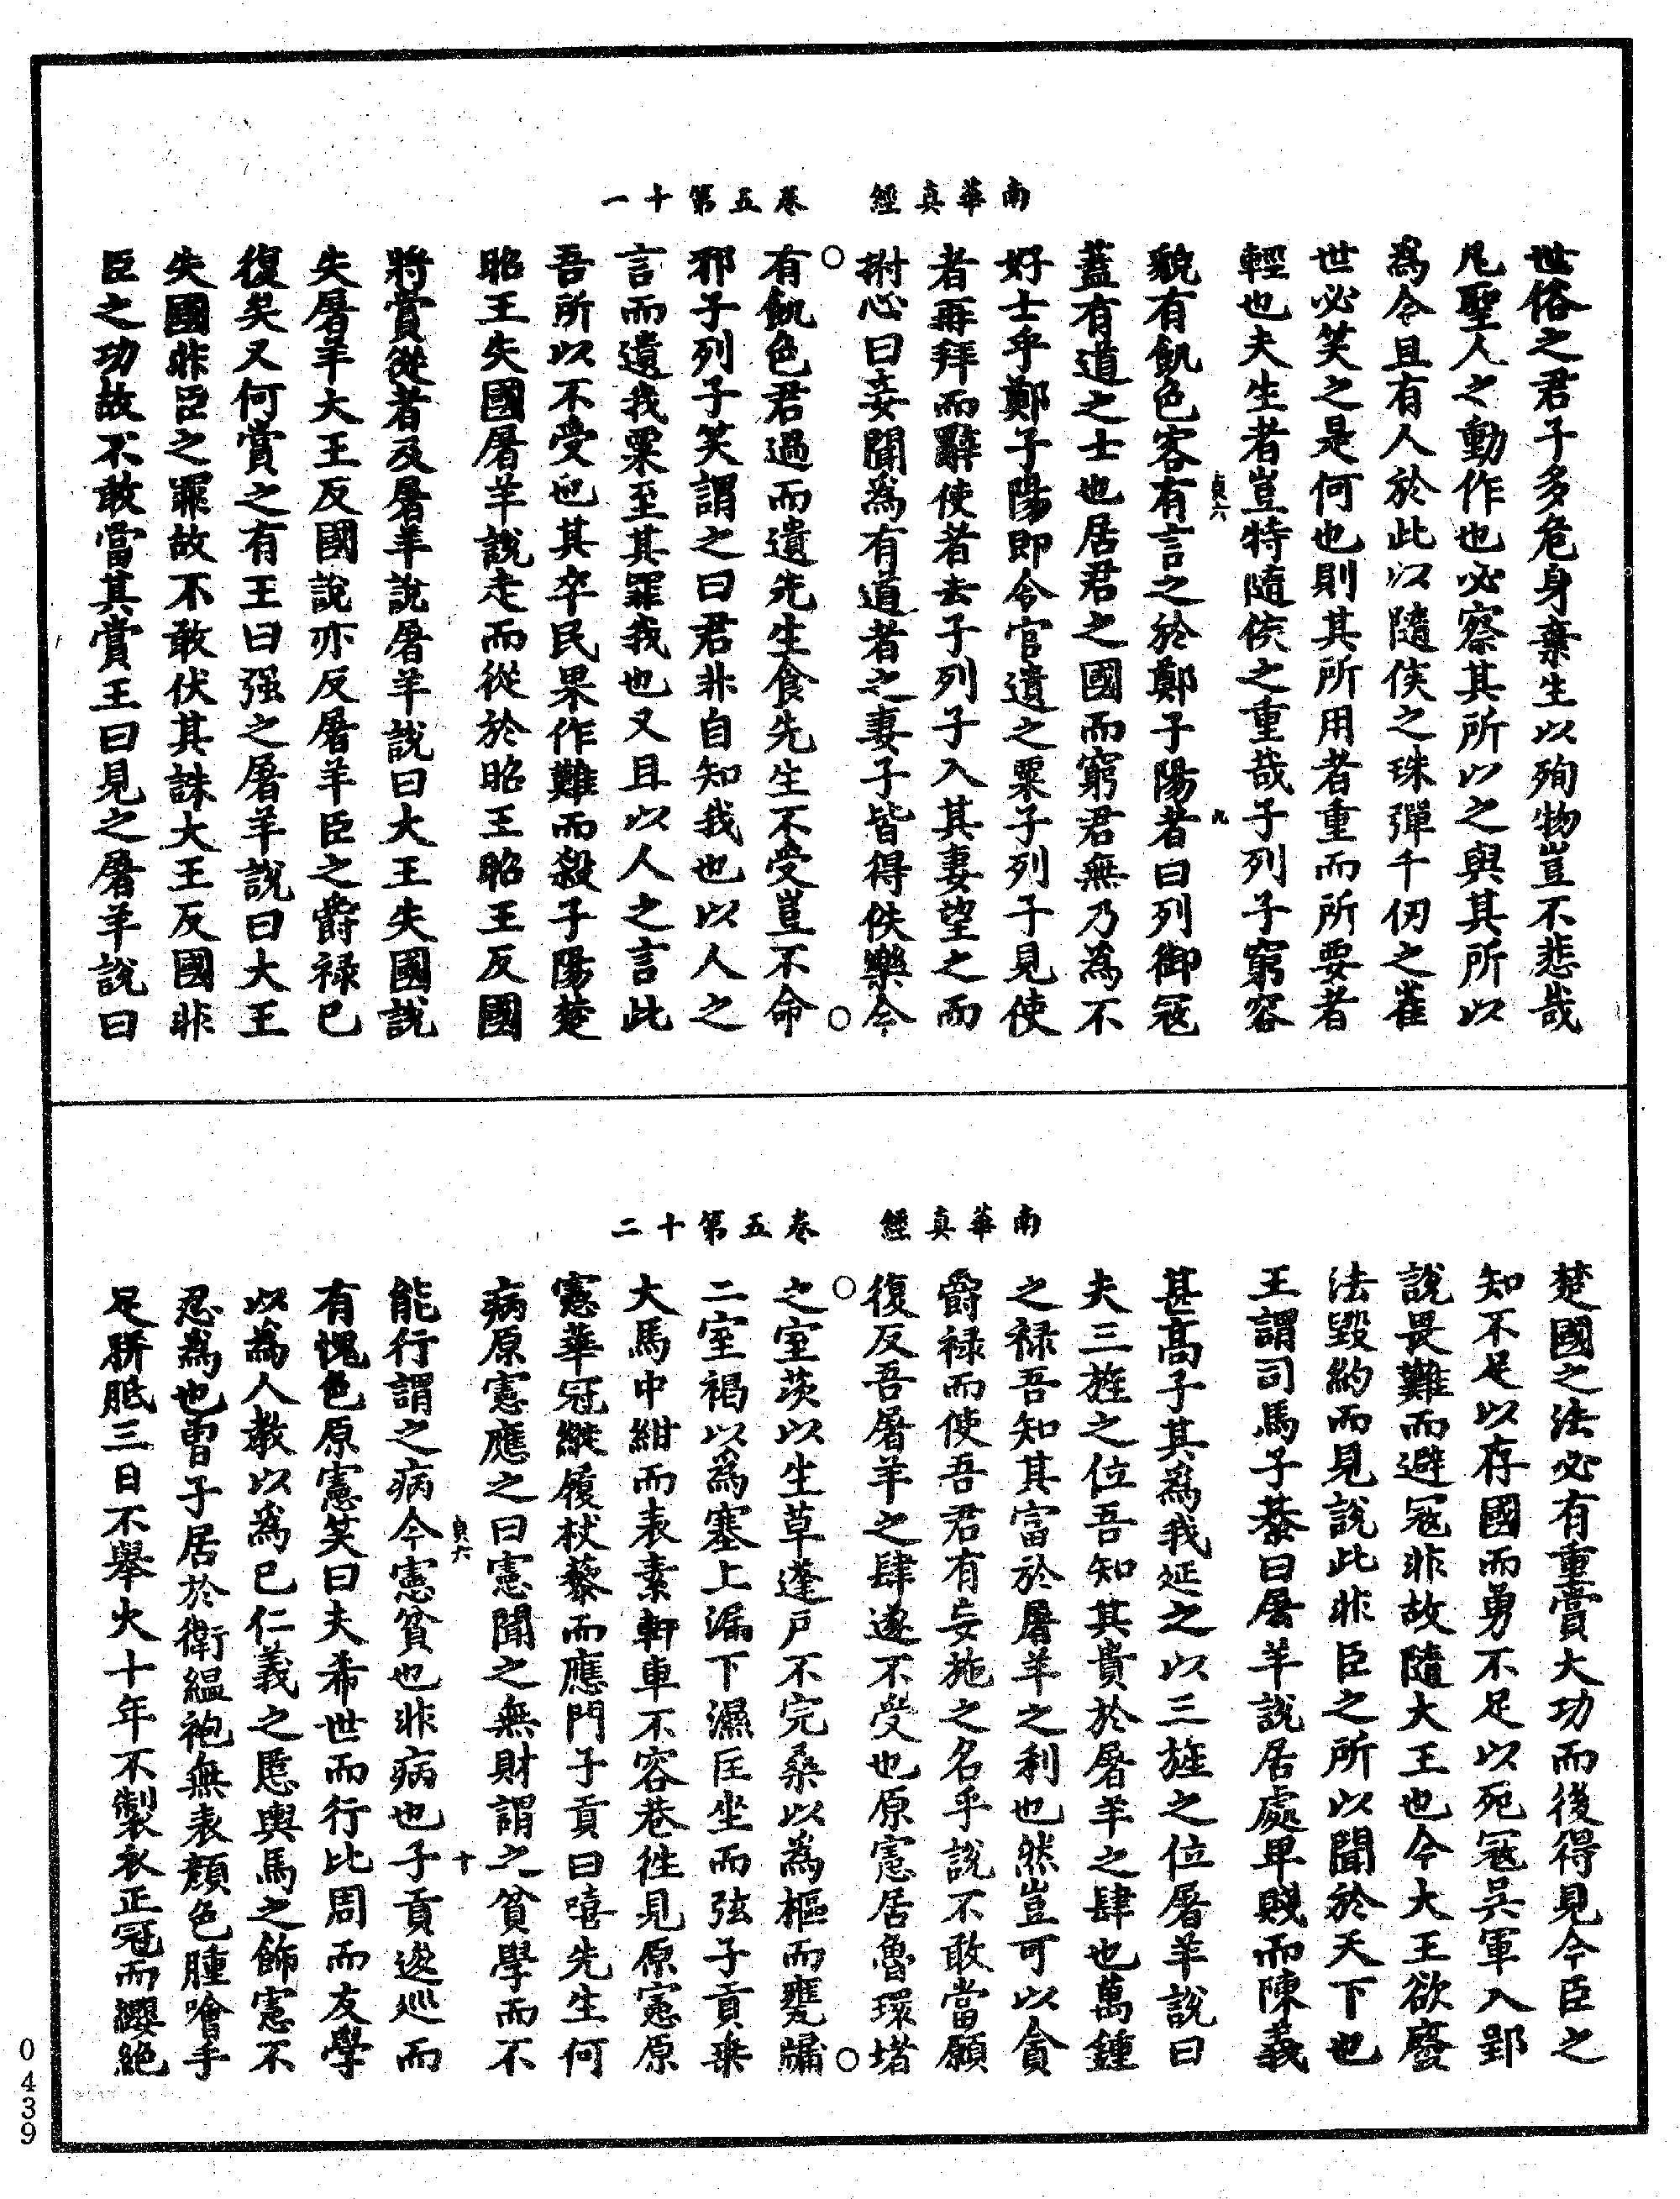 南華真經　卷五第十一
世俗之君子多危身棄生以殉物豈不悲哉
凡聖人之動作也必察其所以之與其所以
為今且有人於此以隨侯之珠彈千仞之雀
世必笑之是何也則其所用者重而所要者
輕也夫生者豈特隨侯之重哉子列子窮容
貞六　九
貌有飢色客有言之於鄭子陽者曰列御寇
蓋有道之士也居君之國而窮君無乃為不
好士乎鄭子陽即令官遺之粟子列子見使
者再拜而辭使者去子列子入其妻望之而
拊心曰妾聞為有道者之妻子皆得佚樂今
有飢色君過而遺先生食先生不受豈不命
邪子列子笑謂之曰君非自知我也以人之
言而遺我粟至其罪我也又且以人之言此
吾所以不受也其卒民果作難而殺子陽楚
昭王失國屠羊說走而從於昭王昭王反國
將賞從者及屠羊說屠羊說曰大王失國說
失屠羊大王反國說亦反屠羊臣之爵祿已
復矣又何賞之有王曰强之屠羊說曰大王
失國非臣之罪故不敢伏其誅大王反國非
臣之功故不敢當其賞王曰見之屠羊說曰
南華真經　卷五第十二
楚國之法必有重賞大功而後得見今臣之
知不足以存國而勇不足以死寇吳軍入郢
說畏難而避寇非故隨大王也今大王欲廢
法毀約而見說此非臣之所以聞於天下也
王謂司馬子綦曰屠羊說居處卑賤而陳義
甚高子其為我延之以三旌之位屠羊說曰
夫三旌之位吾知其貴於屠羊之肆也萬鍾
之祿吾知其富於屠羊之利也然豈可以貪
爵祿而使吾君有妄施之名乎說不敢當願
復反吾屠羊之肆遂不受也原憲居魯環堵
之室茨以生草蓬戶不完桑以為樞而甕牖
二室褐以為塞上漏下濕匡坐而弦子貢乘
大馬中紺而表素軒車不容巷往見原憲原
憲華冠縰履杖藜而應門子貢曰嘻先生何
病原憲應之曰憲聞之無財謂之貧學而不
貞六　十
能行謂之病今憲貧也非病也子貢逡巡而
有愧色原憲笑曰夫希世而行比周而友學
以為人教以為己仁義之慝輿馬之飾憲不
忍為也曾子居於衛緼袍無表顏色腫噲手
足胼胝三日不舉火十年不製衣正冠而纓絕
0439